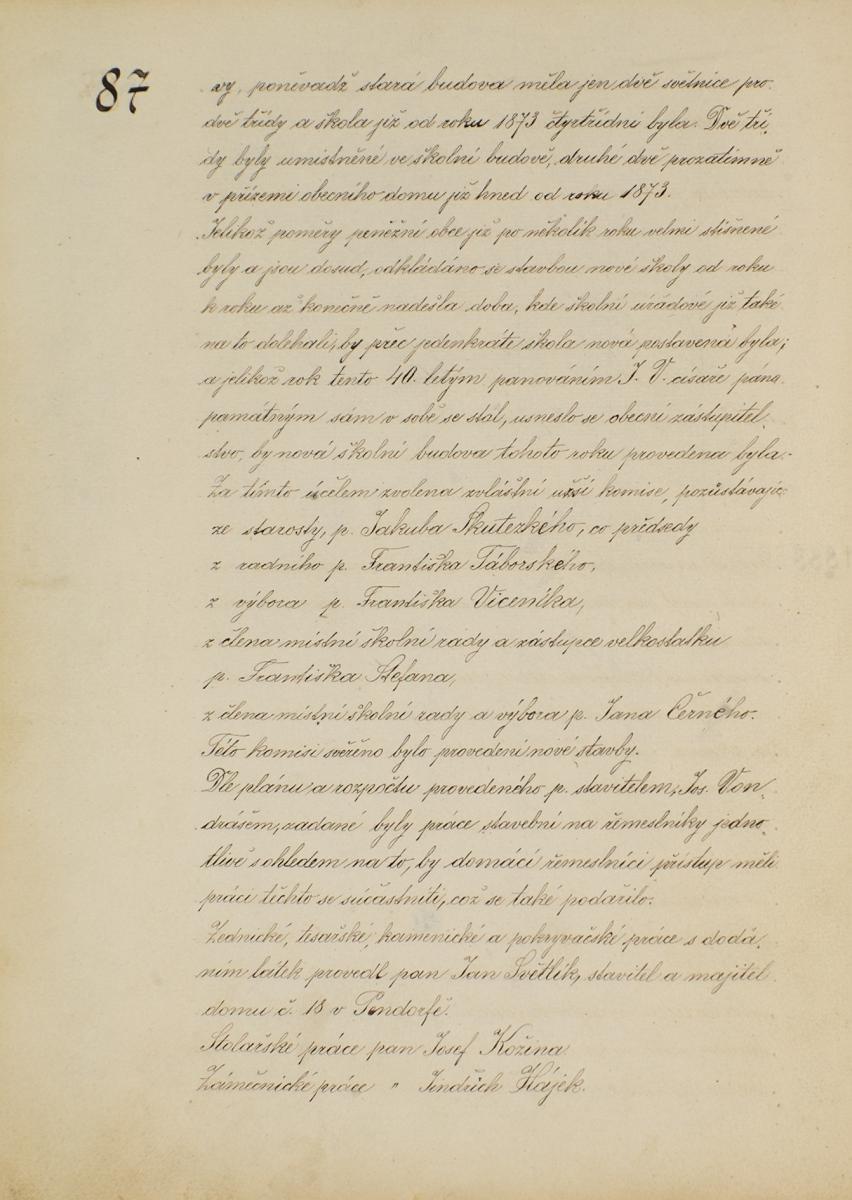 87
vy, poněvadž stará budova měla jen dvě světnice pro
dvě třídy a škola již od roku 1873 čtyrtřídní byla. Dvě tří-
dy byly umístněné ve školní budově, druhé dvě prozatímně
v přízemí obecního domu již hned od roku 1873.
Jelikož poměry peněžní obce již po několik roků velmi stísněné
byly a jsou dosud, odkládáno se stavbou nové školy od roku
k roku až konečně nadešla doba, kde školní úřadové již také
na to doléhali, by přec jedenkráte škola nová postavená byla;
a jelikož rok tento 40. letým panováním J. V. císaře pána
památným sám v sobě se stal, usneslo se obecní zastupitel-
stvo, by nová školní budova tohoto roku provedena byla.-
Za tímto účelem zvolena zvláštní užší komise, pozůstávajíc:
ze starosty, p. Jakuba Skutezkého, co předsedy
z radního p. Františka Táborského,
z výbora p. Františka Viceníka,
z člena místní školní rady a zástupce velkostatku
p. Františka Stefana,
z člena místní školní rady a výbora p. Jana Černého.
Této komisi svěřeno bylo provedení nové stavby.
Dle plánu a rozpočtu provedeného p. stavitelem, Jos. Von-
drášem, zadané byly práce stavební na řemeslníky jedno-
tlivě s ohledem na to, by domácí řemeslníci přístup měli
práci těchto se súčastniti, což se také podařilo.
Zednické, tesařské, kamenické a pokryvačské práce s dodá-
ním látek provedl pan Jan Světlík, stavitel a majitel
domu č. 18 v Pendorfě.
Stolařské práce pan Josef Kožina
Zámečnické práce " Jindřich Hájek.